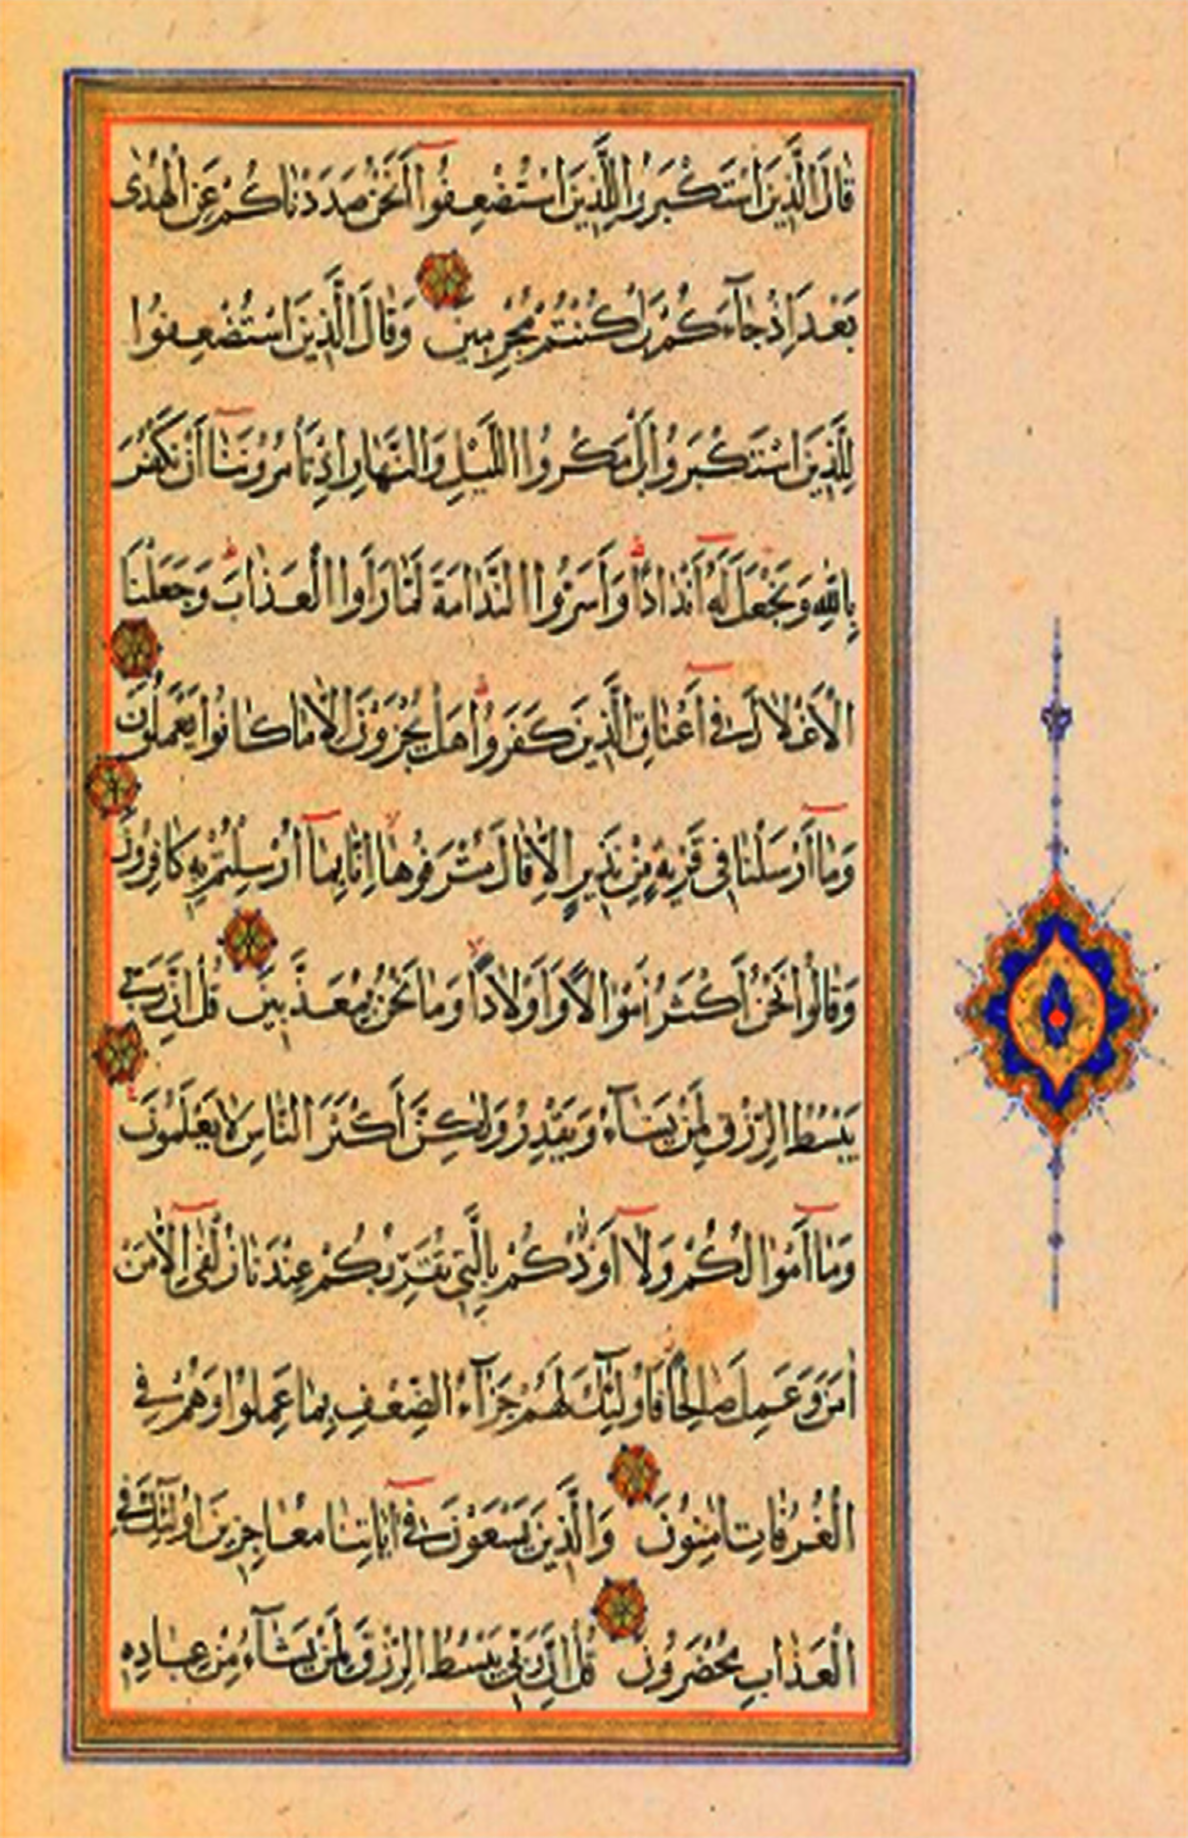 قَالَ الَّذِينَ اسْتَكْبَرُوا لِلَّذِينَ اسْتُضْعِفُوا أَنَحْنُ صَدَدْنَاكُمْ عَنِ الْهُدٰى
بَعْدَ إِذْ جَآءَكُمْ بَلْ كُنْتُمْ مُجْرِمِينَ وَقَالَ الَّذِينَ اسْتُضْعِفُوا
لِلَّذِينَ اسْتَكْبَرُوا بَلْ مَكْرُ اللَّيْلِ وَالنَّهَارِ إِذْ تَأْمُرُونَنَا أَنْ نَكْفُرَ
بِاللّٰهِ وَنَجْعَلَ لَهُ أَنْدَادًا وَأَسَرُّوا النَّدَامَةَ لَمَّا رَأَوُا الْعَذَابَ وَجَعَلْنَا
الْأَغْلَالَ فِي أَعْنَاقِ الَّذِينَ كَفَرُوا هَلْ يُجْزَوْنَ إِلَّا مَا كَانُوا يَعْمَلُونَ
وَمَا أَرْسَلْنَا فِي قَرْيَةٍ مِنْ نَذِيرٍ إِلَّا قَالَ مُتْرَفُوهَا إِنَّا بِمَا أُرْسِلْتُمْ بِهِ كَافِرُونَ
وَقَالُوا نَحْنُ أَكْثَرُ أَمْوَالًا وَأَوْلَادًا وَمَا نَحْنُ بِمُعَذَّبِينَ قُلْ إِنَّ رَبِّي
يَبْسُطُ الرِّزْقَ لِمَنْ يَشَآءُ وَيَقْدِرُ وَلٰكِنَّ أَكْثَرَ النَّاسِ لَا يَعْلَمُونَ
وَمَا أَمْوَالُكُمْ وَلَا أَوْلَادُكُمْ بِالَّتِي تُقَرِّبُكُمْ عِنْدَنَا زُلْفٰى إِلَّا مَنْ
اٰمَنَ وَعَمِلَ صَالِحًا فَأُولٰئِكَ لَهُمْ جَزَآءُ الضِّعْفِ بِمَا عَمِلُوا وَهُمْ فِي
الْغُرُفَاتِ اٰمِنُونَ وَالَّذِينَ يَسْعَوْنَ فِي اٰيَاتِنَا مُعَاجِزِينَ أُولٰئِكَ فِي
الْعَذَابِ مُحْضَرُونَ قُلْ إِنَّ رَبِّي يَبْسُطُ الرِّزْقَ لِمَنْ يَشَآءُ مِنْ عِبَادِهِ